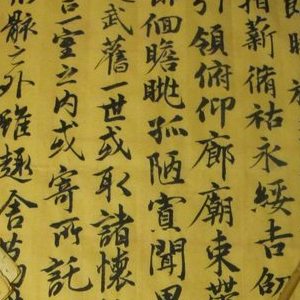 朗曜
指薪脩祜永綏吉劭
引領俯仰廊廟束帶
徊瞻眺孤陋寡聞
舊一世或取諸懷
言一室之内或寄所託
骸之外雖趣舍萬